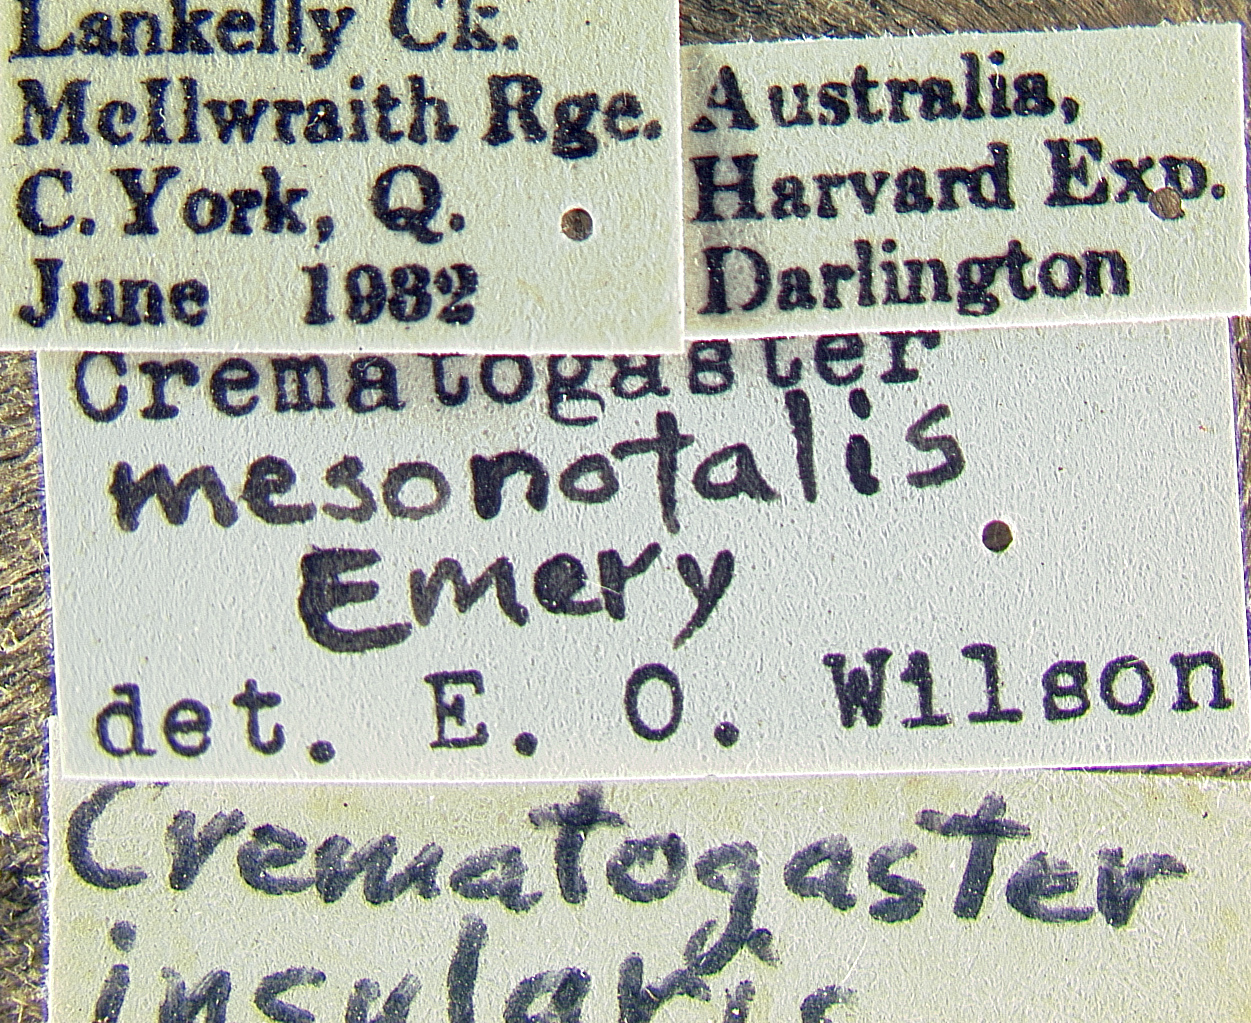 Lankelly Ck.
McIlwraith Rge.
C. York, Q.
June 1932
Australia,
Harvard Exp.
Darlington
Crematogaster
mesonotalis
Emery
det. E. O. Wilson
Crematogaster
insularis